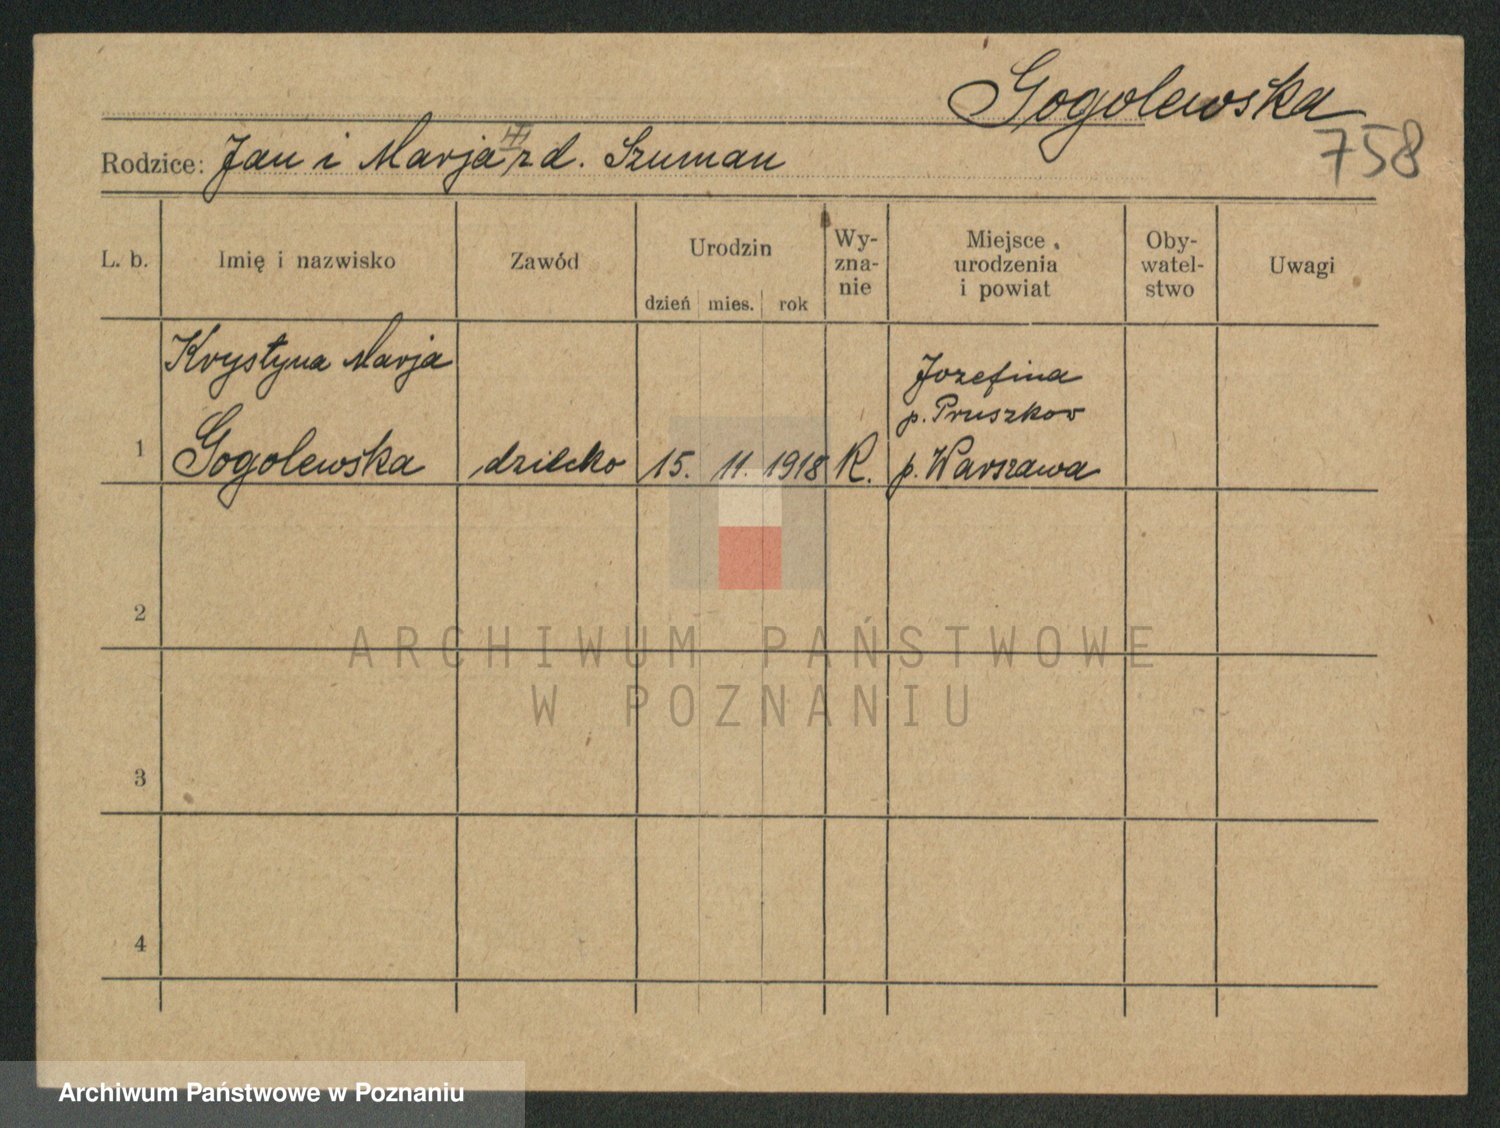 Gogolewska
758
Rodzice: Jan i Marja zd. Szuman
L. b.
Imię i nazwisko
Zawód
Urodzin
dzień mies. rok
Wy-
zna-
nie
Miejsce
urodzenia
i powiat
Oby-
watel-
stwo
Uwagi
Krystyna Marja
Józefina
p. Pruszkov
1 Gogolewska dziecko 15. 11. 1918 R. p. Warszawa
2
ARCHIWUM PAŃSTWOWE
W POZNANIU
3
4
Archiwum Państwowe w Poznaniu